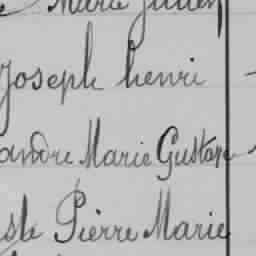 Marie Julien
Joseph henri
andre Marie Gustave
Pierre Marie